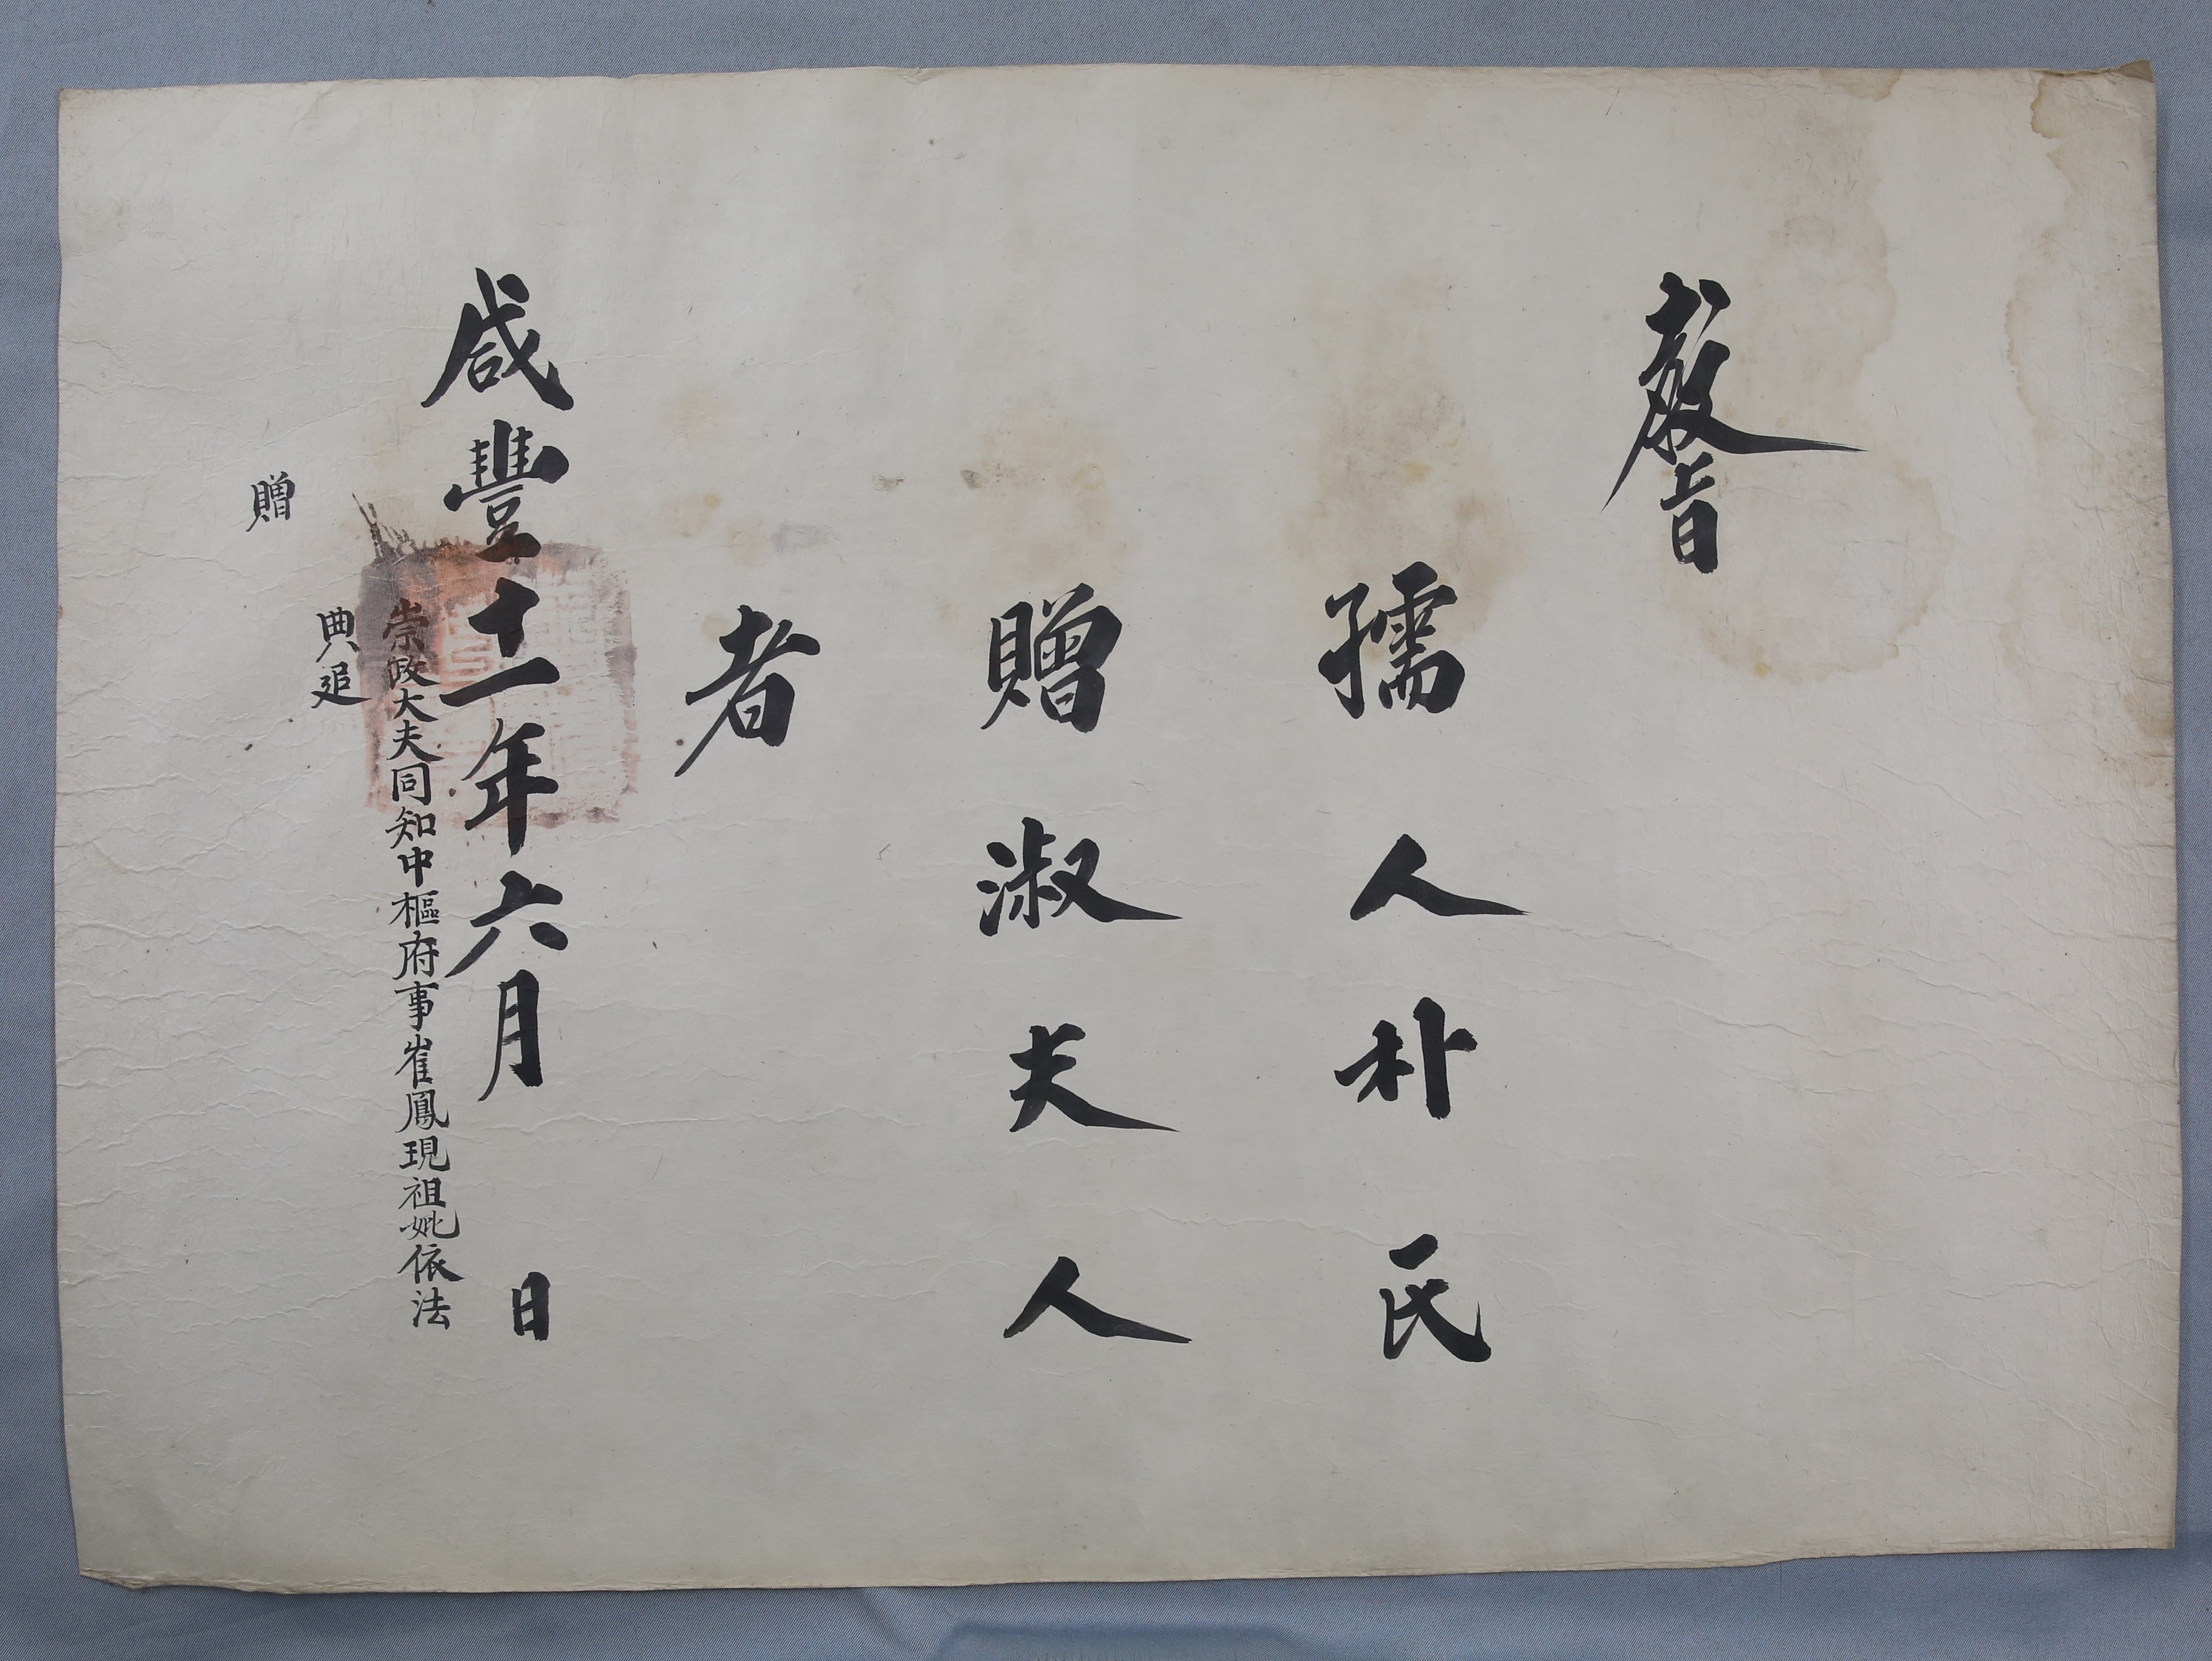 敎旨
孺人朴氏
贈淑夫人
者
咸豐十一年六月 日
崇政大夫同知中樞府事崔鳳現祖妣依法
典追
贈